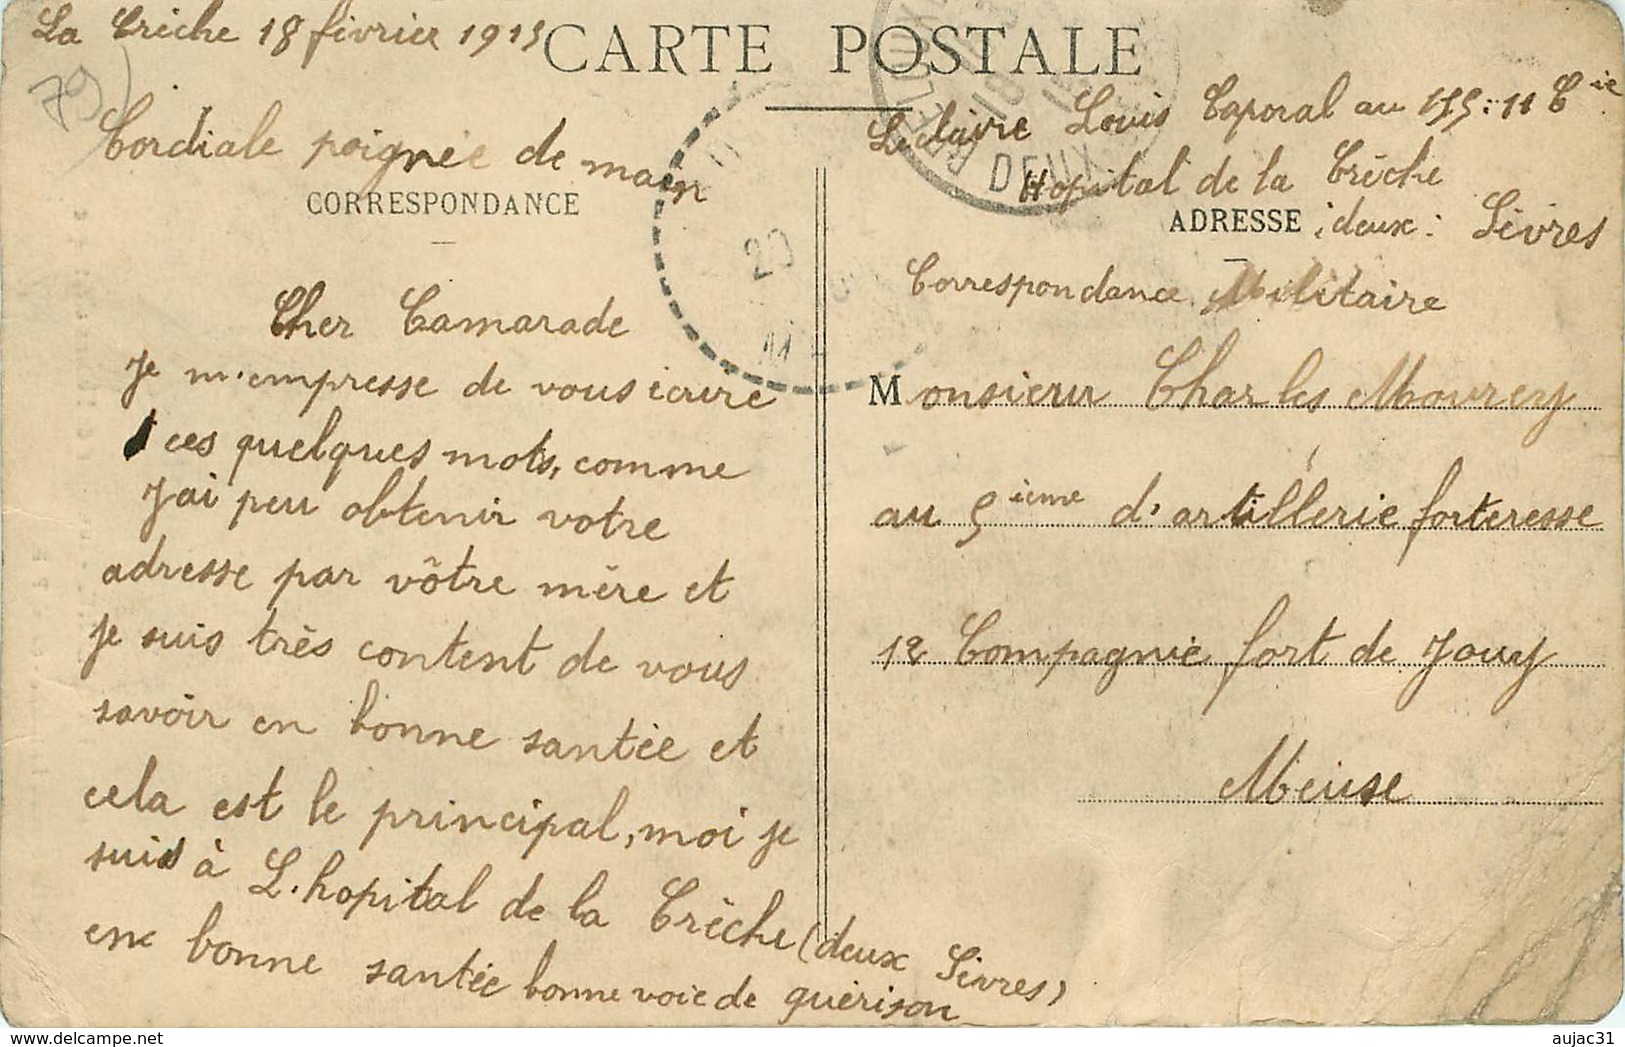 La Crèche 18 février 1915
CARTE POSTALE
79)
Cordiale poignée de main
CORRESPONDANCE
Cher Camarade
Je m'empresse de vous écrire
ces quelques mots, comme
J'ai peu obtenir votre
adresse par vôtre mère et
je suis très content de vous
savoir en bonne santée et
cela est le principal, moi je
suis à L'hopital de la Crèche (deux Sèvres)
en bonne santée bonne voie de guérison
Leclaire Louis Caporal au 155: 11 Cie
Hopital de la Crèche
ADRESSE deux: Sèvres
Correspondance Militaire
Monsieur Charles Mourey
au 5ième d'artillerie forteresse
12 Compagnie fort de Jouy
Meuse
DEUX
20
www.delcampe.net
aujac31